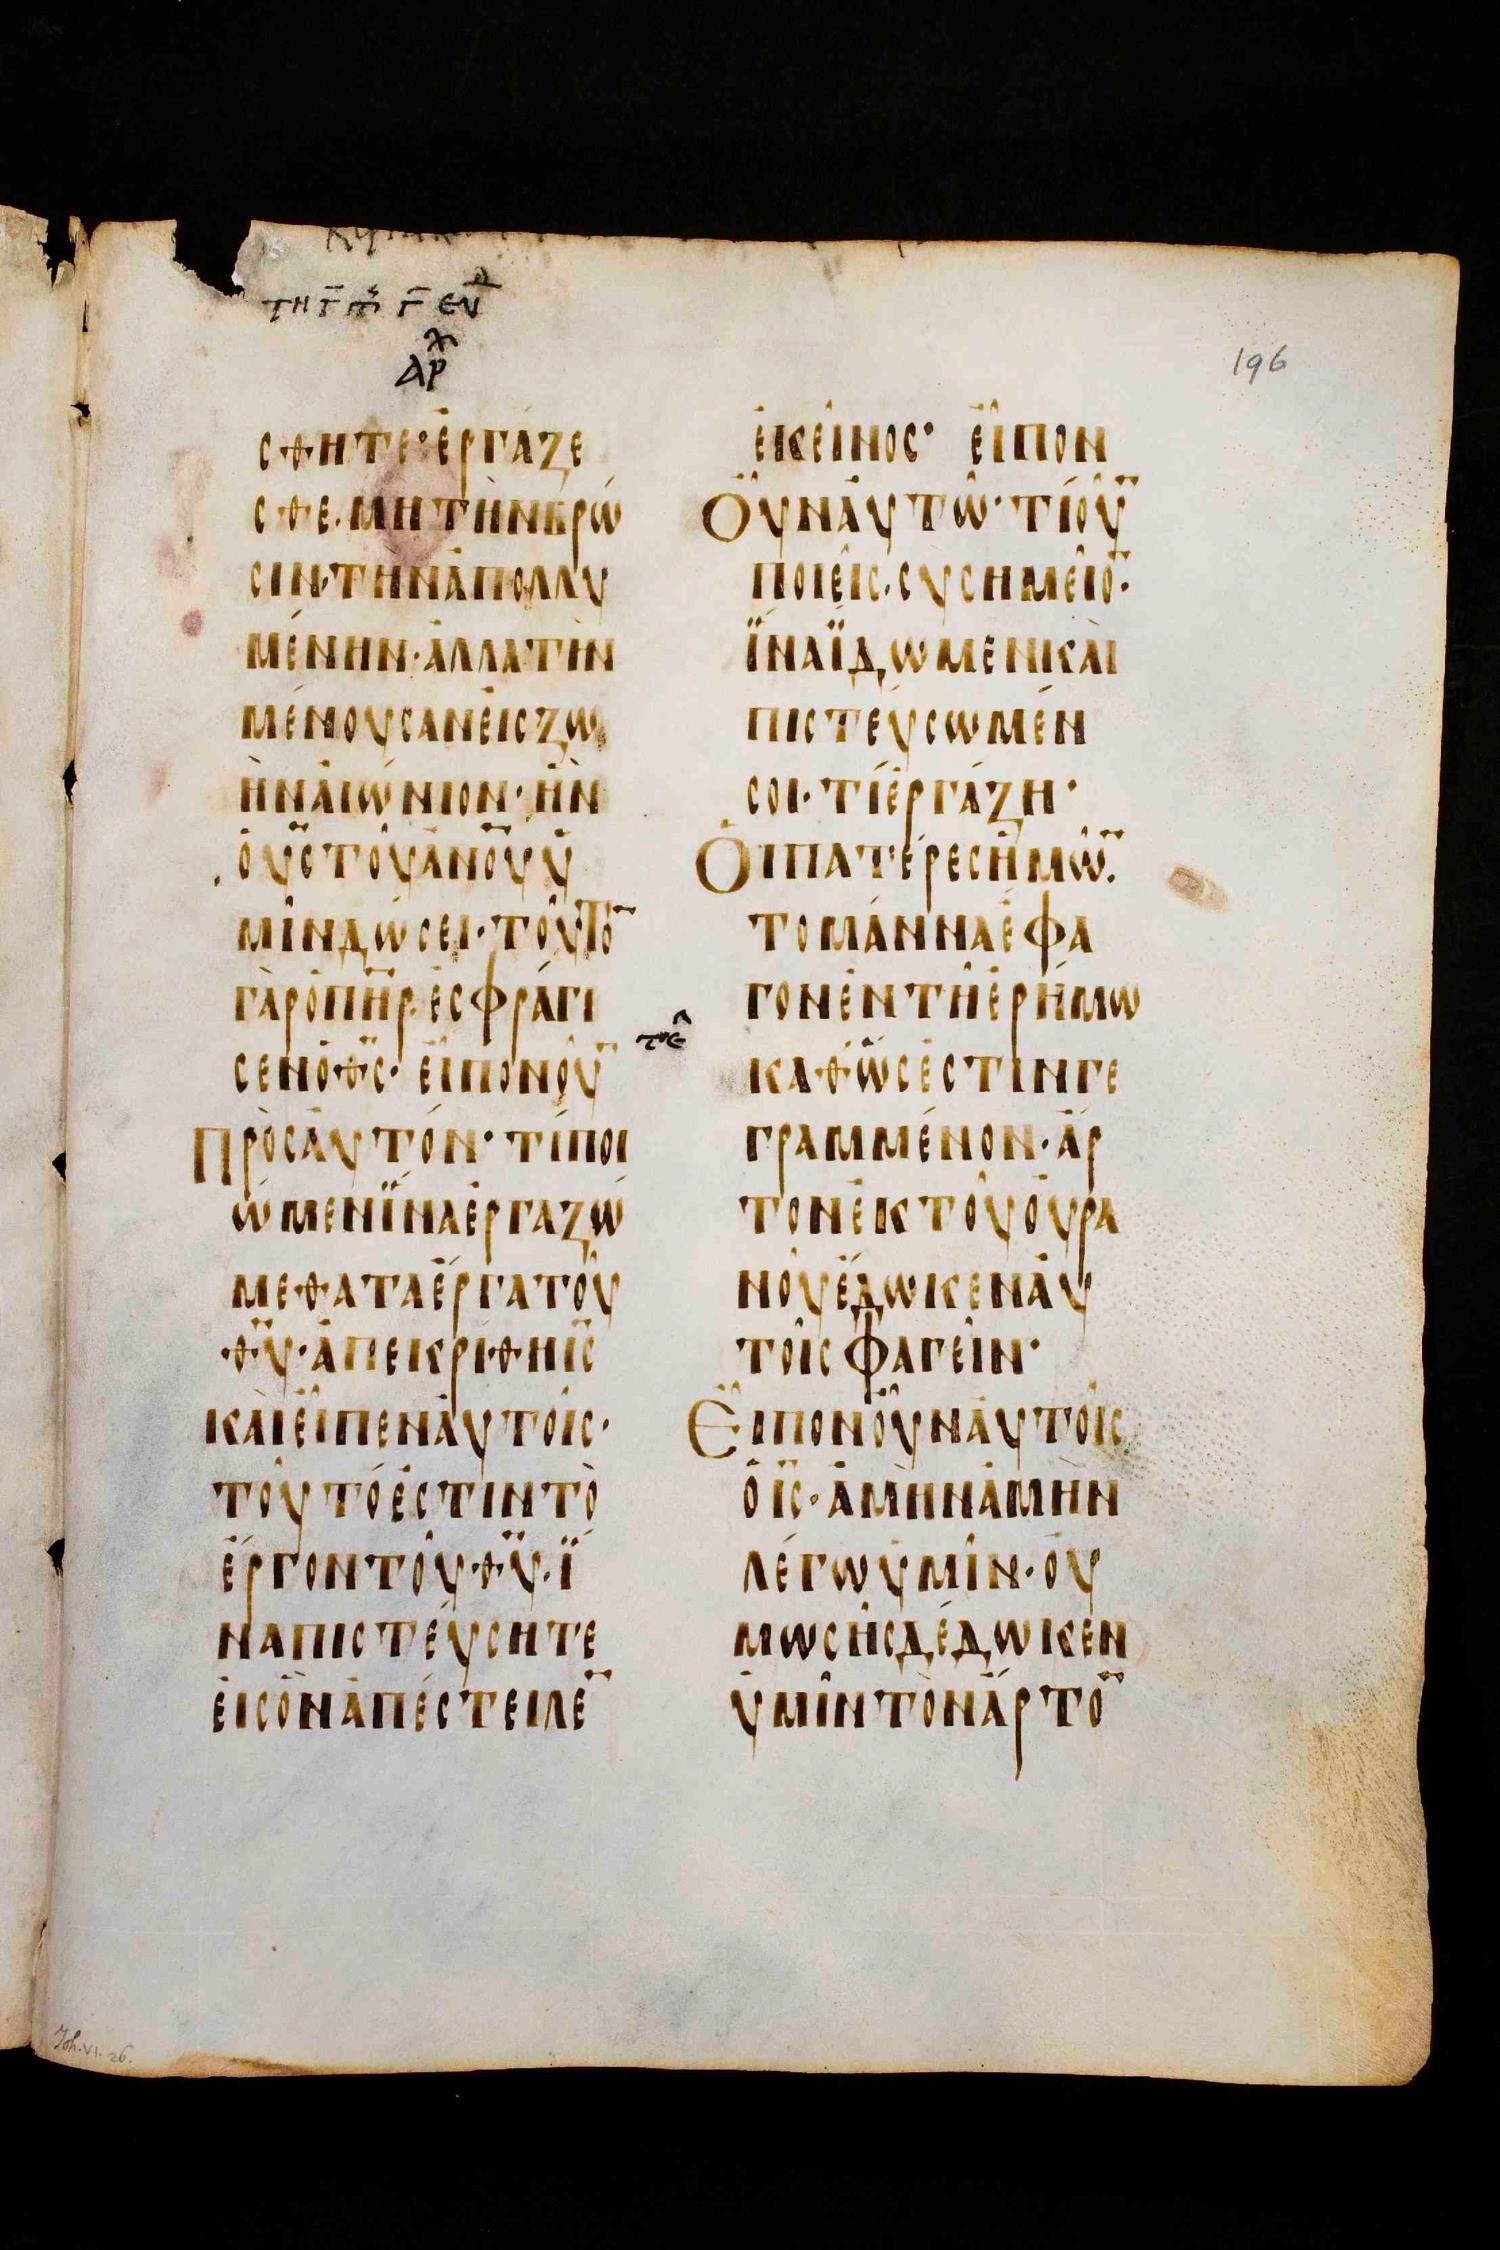 196
ΑΡΧ
ϹΘΗΤΕ· ἘΡΓΆΖΕ
ϹΘΕ· ΜῊ ΤῊΝ ΒΡῶ
ϹΙΝ· ΤῊΝ ἈΠΟΛΛΥ
ΜΈΝΗΝ· ἈΛΛΑ ΤῊΝ
ΜΈΝΟΥϹΑΝ ἘΙϹ ΖΩ
ῊΝ ἈΙΏΝΙΟΝ· ἫΝ
Ὁ ΥϹ ΤΟΥ ἈΝΟΥ Ὑ
ΜΙ͂Ν ΔΏϹΕΙ· ΤΟΥ͂ΤΟ̅
ΓᾺΡ Ὁ ΠΗΡ· ἘϹΦΡΆΓΙ
ϹΕΝ Ὁ ΘϹ· ἘΙ͂ΠΟΝ ΟΥ̅
ΠΡῸϹ ἈΥΤΌΝ· ΤΊ ΠΟΙ
Ώ̓ΜΕΝ ΪΝΑ ἘΡΓΑΖΏ
ΜΕΘΑ ΤΑ ἜΡΓΑ ΤΟΥ͂
ΘΥ· ἈΠΕΚΡΙΘΗ ΙϹ
ΚΑῚ ἘΙ͂ΠΕΝ ἈΥΤΟΙ͂Ϲ·
ΤΟΥ͂ΤΌ ἘϹΤΙΝ ΤῸ
ἜΡΓΟΝ ΤΟΥ͂ ΘΥ· Ϊ
ΝΑ ΠΙϹΤΈΥϹΗΤΕ
ἘΙϹ ὋΝ ἈΠΈϹΤΕΙΛΕ̅
ἘΚΕΙ͂ΝΟϹ· ἘΙ͂ΠΟΝ
ΟΥ͂Ν ἈΥΤΩ͂· ΤΊ ΟΥ̅
ΠΟΙΕΙ͂Ϲ· ϹΥ ϹΗΜΕΙ͂Ο̅·
ΪΝΑ ΪΔΩΜΕΝ ΚΑῚ
ΠΙϹΤΈΥϹΩΜΈΝ
ϹΟΙ· ΤΊ ἘΡΓΆΖΗ·
ὉΙ ΠΑΤΈΡΕϹ ἩΜΩ̅·
ΤΟ ΜΆΝΝΑ ἘΦΑ
ΓΟΝ ἘΝ ΤΗ͂ ἘΡΉΜΩ
ΚΑΘΏϹ ἘϹΤΙΝ ΓΕ
ΓΡΑΜΜΈΝΟΝ· ἌΡ
ΤΟΝ ἘΚ ΤΟΥ͂ ΟΥ̓ΡΑ
ΝΟΥ͂ ἜΔΩΚΕΝ ἈΥ
ΤΟΙ͂Ϲ ΦΑΓΕΙ͂Ν·
ἘΙ͂ΠΟΝ ΟΥ͂Ν ἈΥΤΟΙ͂Ϲ
Ὁ ΙϹ· ἈΜῊΝ ἈΜῊΝ
ΛΈΓΩ ὙΜΙ͂Ν· ΟΥ̓
ΜΩϹΗ͂Ϲ ΔΈΔΩΚΕΝ
ὙΜΙ͂Ν ΤῸΝ ἌΡΤΟ̅
ΤΕΛ
Joh. VI. 26.